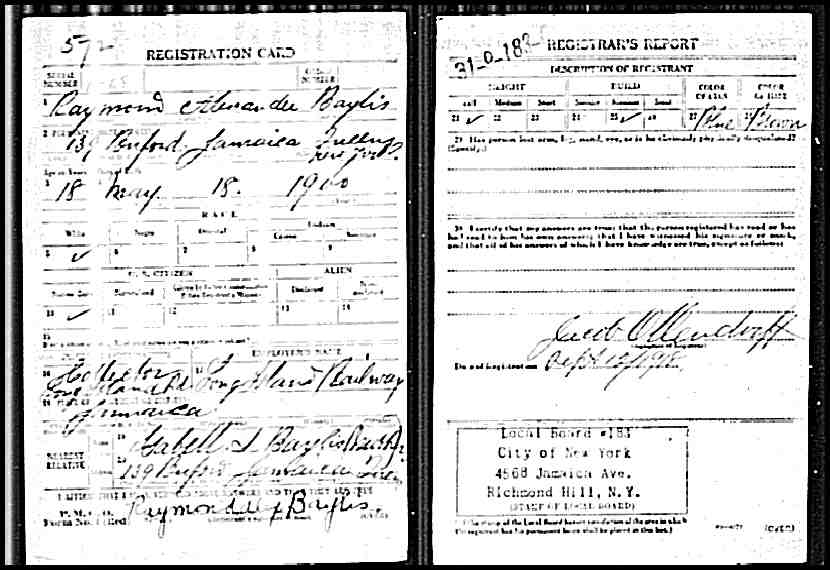 572
REGISTRATION CARD
SERIAL NUMBER
Raymond Alexander Baylis
139 Buford Jamaica Queens
New York
18 May 18. 1900
RACE
White Negro Oriental
5 ✓ 6 7 8 9
U.S. CITIZEN ALIEN
10 ✓ 11 12 13 14
15
EMPLOYER'S NAME
Collector Long Island Railway
Jamaica
NEAREST RELATIVE
19 Isabell L Baylis
20 139 Buford Jamaica
Raymond Alex Baylis.
31-0-183
REGISTRAR'S REPORT
DESCRIPTION OF REGISTRANT
HEIGHT BUILD COLOR OF EYES COLOR OF HAIR
Tall Medium Short Slender Medium Stout
21 ✓ 22 23 24 25 ✓ 26 27 Blue 28 Brown
29 Has person lost arm, leg, hand, eye, or is he obviously physically disqualified?
(Specify.)
30. I certify that my answers are true; that the person registered has read or has
had read to him his own answers; that I have witnessed his signature or mark,
and that all of his answers of which I have knowledge are true, except as follows:
Jacob Ollendorff
Date of Registration Sept 12/1918
Local Board #183
City of New York
4568 Jamaica Ave.
Richmond Hill, N.Y.
(STAMP OF LOCAL BOARD)
(The stamp of the Local Board having jurisdiction of the area in which
the registrant has his permanent home shall be placed in this box.)
(OVER)